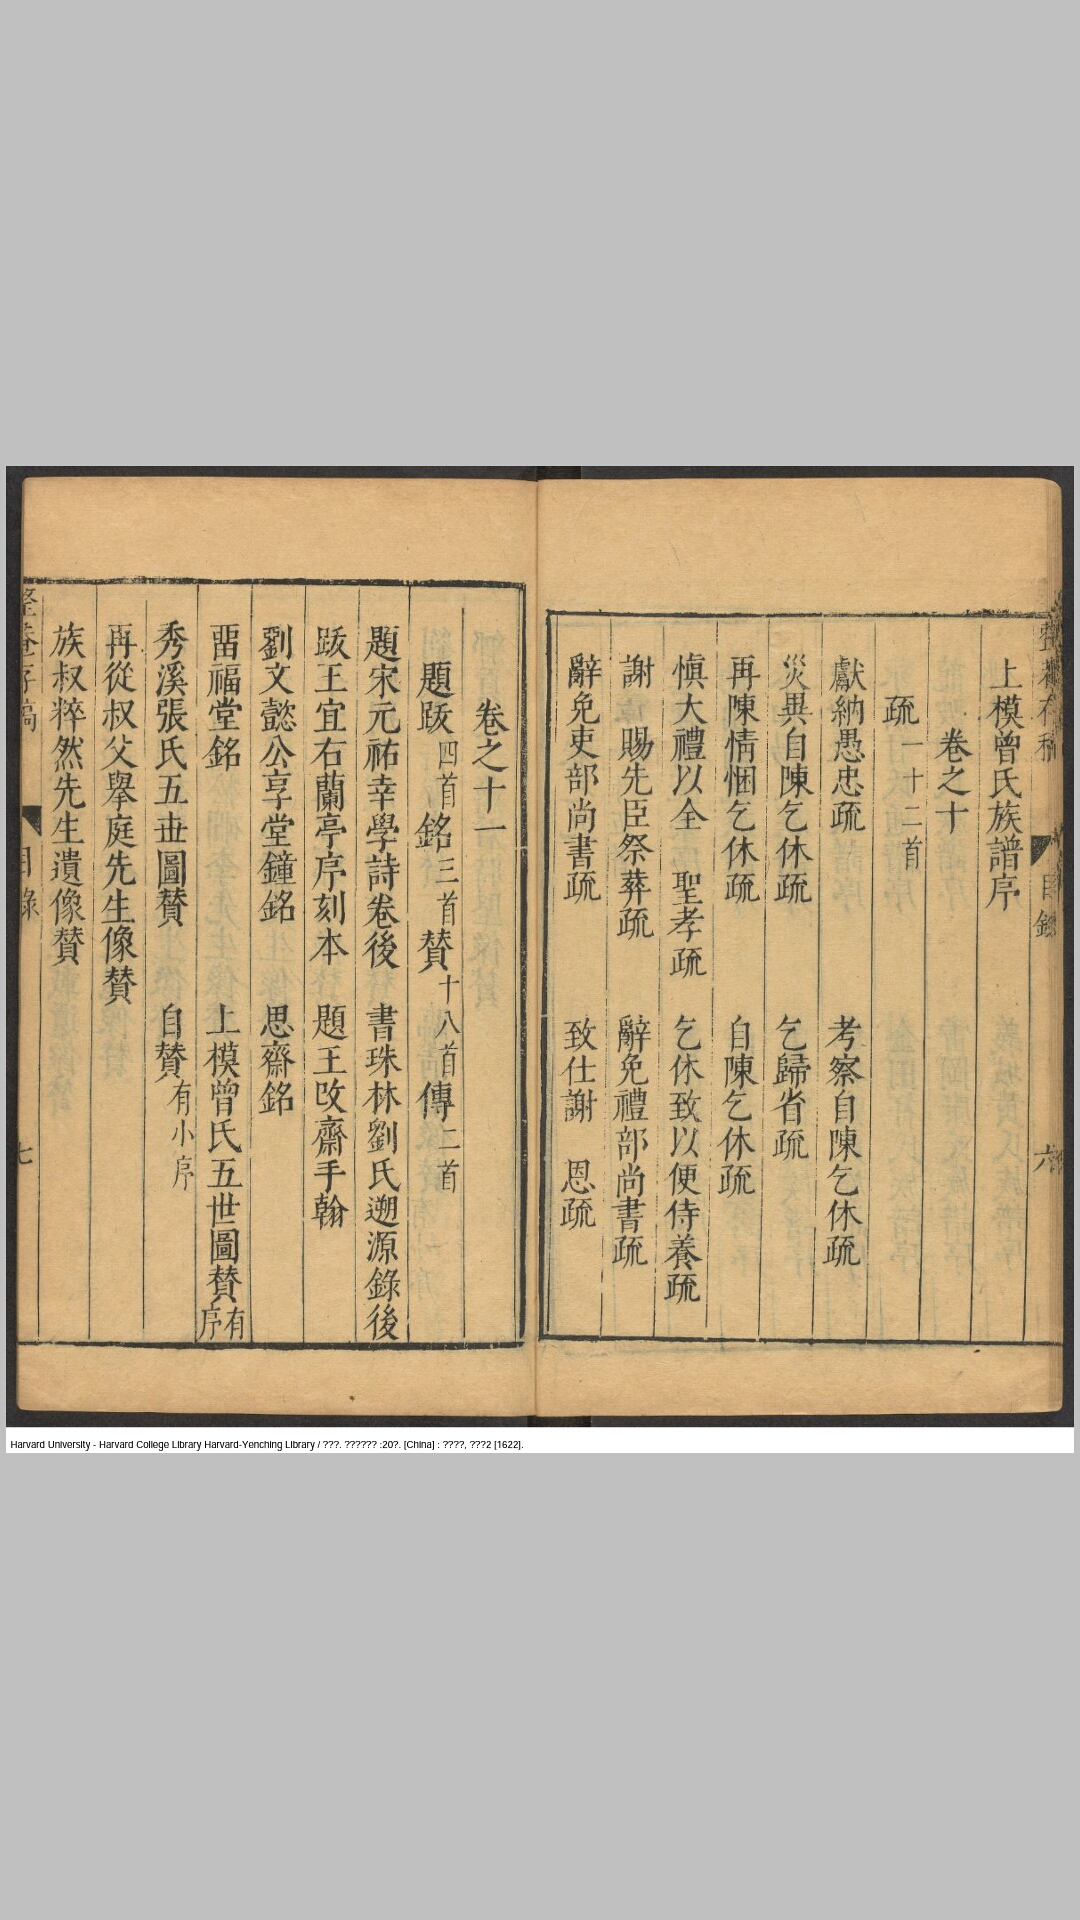 上模曾氏族譜序
卷之十
疏一十二首
獻納愚忠疏 考察自陳乞休疏
災異自陳乞休疏 乞歸省疏
再陳情悃乞休疏 自陳乞休疏
慎大禮以全 聖孝疏 乞休致以便侍養疏
謝 賜先臣祭葬疏 辭免禮部尚書疏
辭免吏部尚書疏 致仕謝 恩疏
目錄
六
卷之十一
題跋四首銘三首賛十八首傳二首
題宋元祐幸學詩卷後 書珠林劉氏遡源錄後
跋王宜右蘭亭序刻本 題王改齋手翰
劉文懿公享堂鐘銘 思齋銘
畱福堂銘 上模曾氏五世圖賛有序
秀溪張氏五丗圖賛 自賛有小序
再從叔父舉庭先生像賛
族叔粹然先生遺像賛
目錄
七
Harvard University - Harvard College Library Harvard-Yenching Library / ???. ?????? :20?. [China] : ????, ???2 [1622].